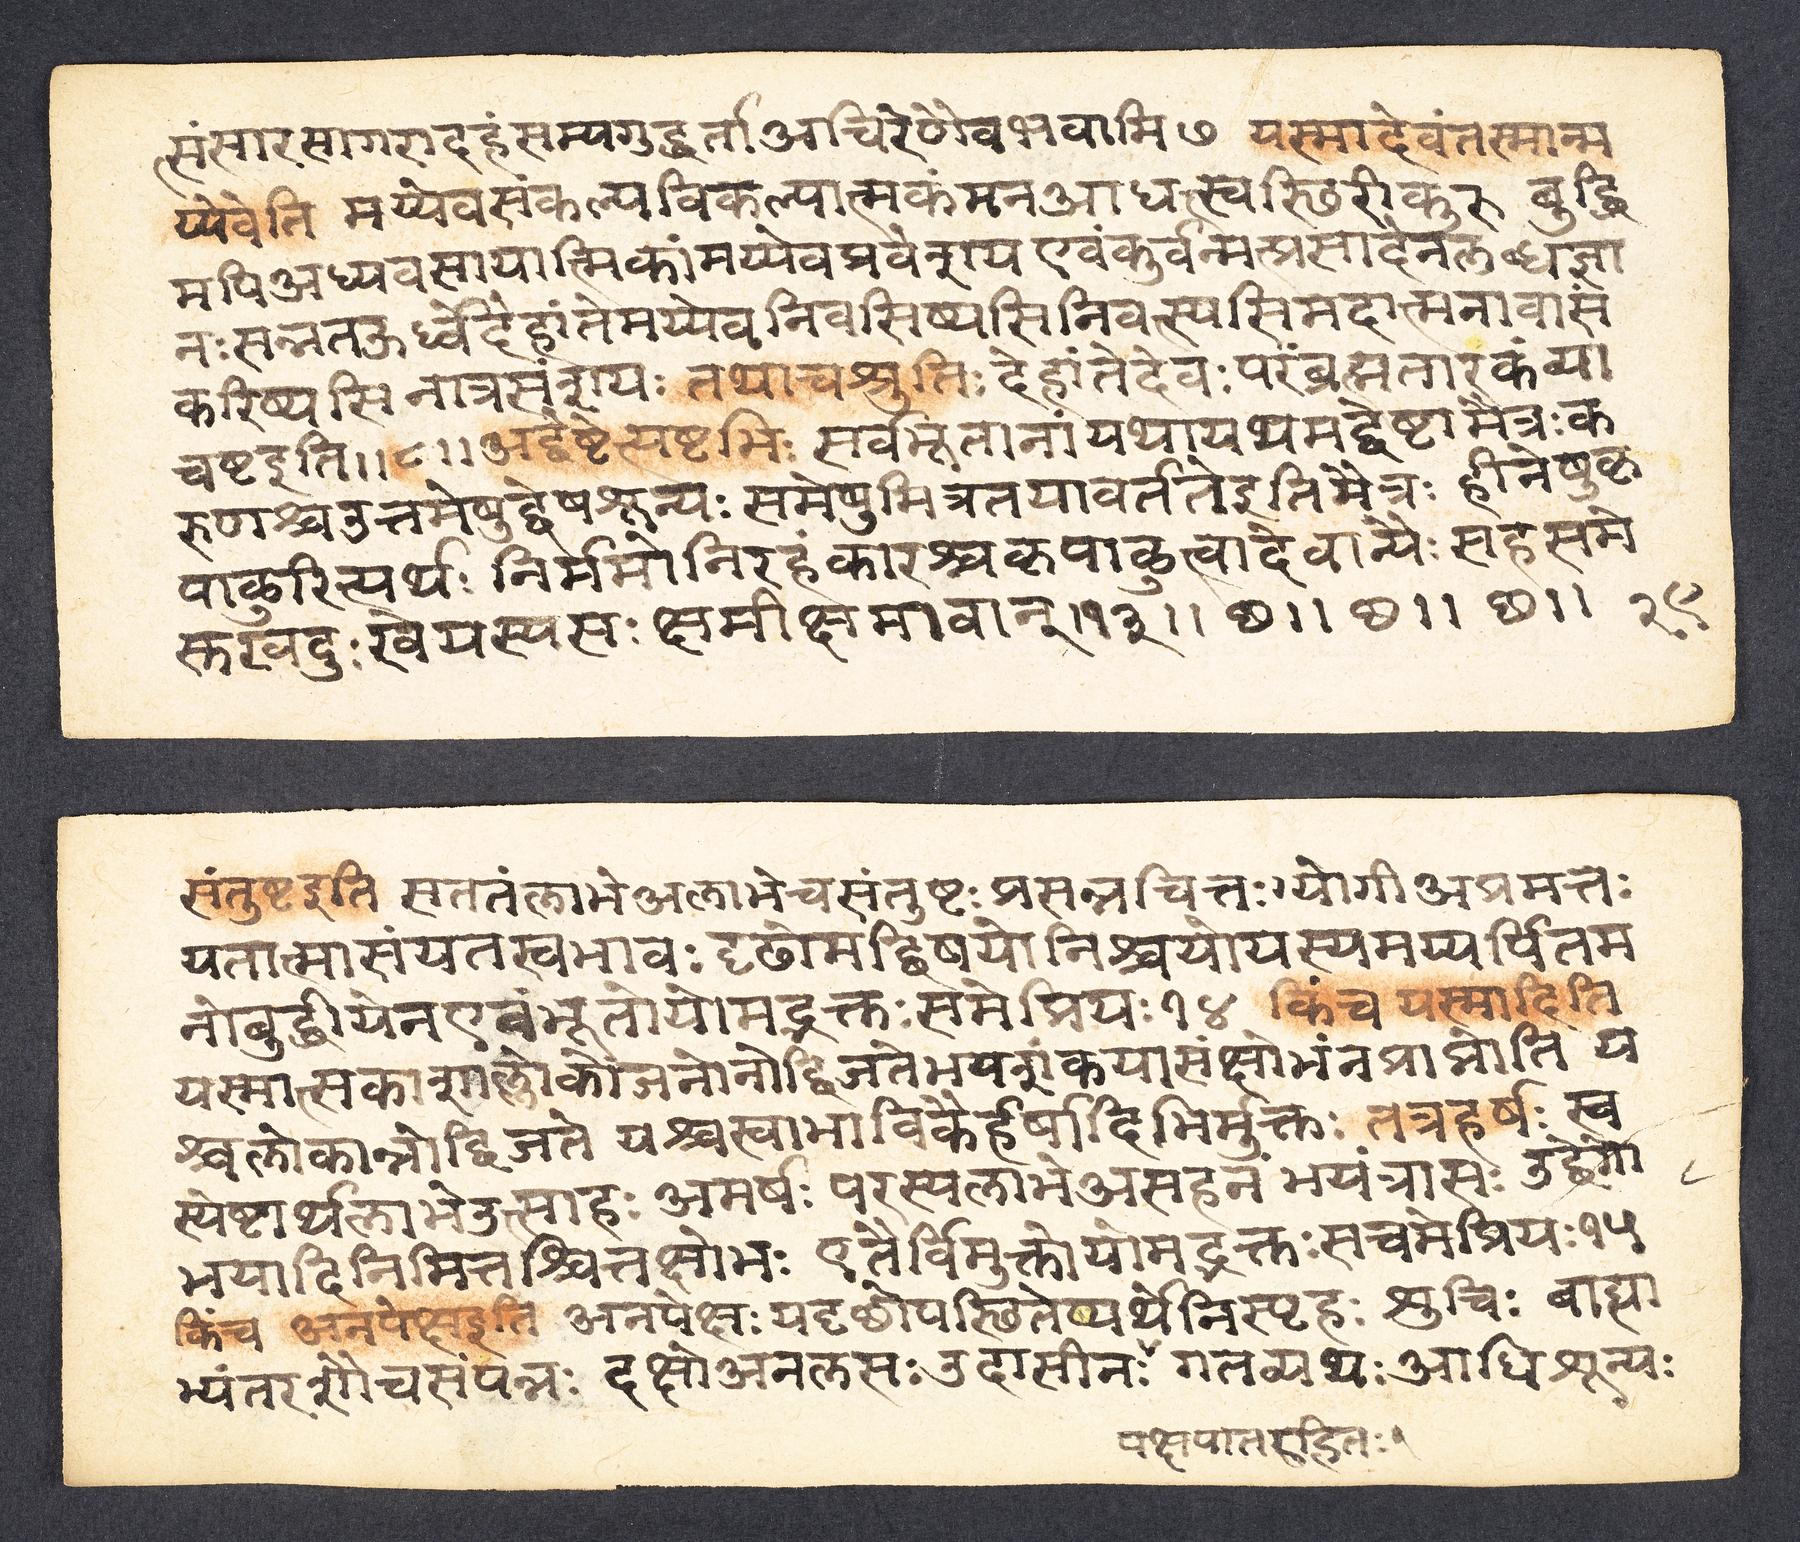 त्संसारसागरादहंसम्यगुद्धर्ताअचिरेणैवभवामि ७ यस्मादेवंतस्मान्म
य्येवेति मय्येवसंकल्पविकल्पात्मकंमनआधत्स्वस्छिरीकुरु बुद्धि
मपिअध्यवसायात्मिकांमय्येवप्रवेशय एवंकुर्वन्मत्प्रसादेनलब्धज्ञा
नःसन्नतऊर्ध्वंदेहांतेमय्येवनिवसिष्यसिनिवत्स्यसिमदात्मनावासं
करिष्यसि नात्रसंशयः तथाचश्रुतिः देहांतेदेवःपरंब्रह्मतारकंव्या
चष्टइति।।८।।अद्वेष्टेत्यष्टभिः सर्वभूतानांयथायथमद्वेष्टामैत्रःक
रुणश्चउत्तमेषुद्वेषशून्यः समेषुमित्रतयावर्ततेइतिमैत्रः हीनेषुकृ
पाळुरित्यर्थः निर्ममोनिरहंकारश्चकृपाळुत्वादेवान्यैः सहसमे
सुखदुःखेयस्यसः क्षमीक्षमावान्।१३।। छ।। छ।। छ।। २९
संतुष्टइति सततंलाभेअलाभेचसंतुष्टःप्रसन्नचित्तः।योगीअप्रमत्तः
यतात्मासंयतस्वभावः दृढोमद्विषयोनिश्चयोयस्यमय्यर्पितेम
नोबुद्धीयेनएवंभूतोयोमद्भक्तःसमेप्रियः१४ किंच यस्मादिति
यस्मात्सकाशाल्लोकोजनोनोद्विजतेभयशंकयासंक्षोभंनप्राप्नोति य
श्चलोकान्नोद्विजते यश्चस्वाभाविकैर्हर्षादिभिर्मुक्तः तत्रहर्षः स्व
स्येष्टार्थलाभेउत्साहः अमर्षः परस्यलाभेअसहनं भयंत्रासः उद्वेगो
भयादिनिमित्तश्चित्तक्षोभः एतैर्विमुक्तोयोमद्भक्तःसचमेप्रियः१५
किंच अनपेक्षइति अनपेक्षःयदृछोपस्छितेप्यर्थेनिस्पृहः शुचिः बाह्या
भ्यंतरशौचसंपन्नः दक्षोअनलसःउदासीनः गतव्यथःआधिशून्यः
पक्षपातरहितः।